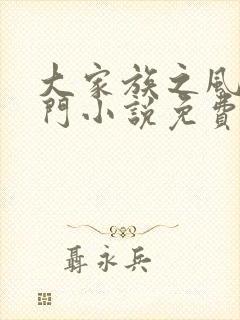 大家族之風
門小說免費
聶永兵